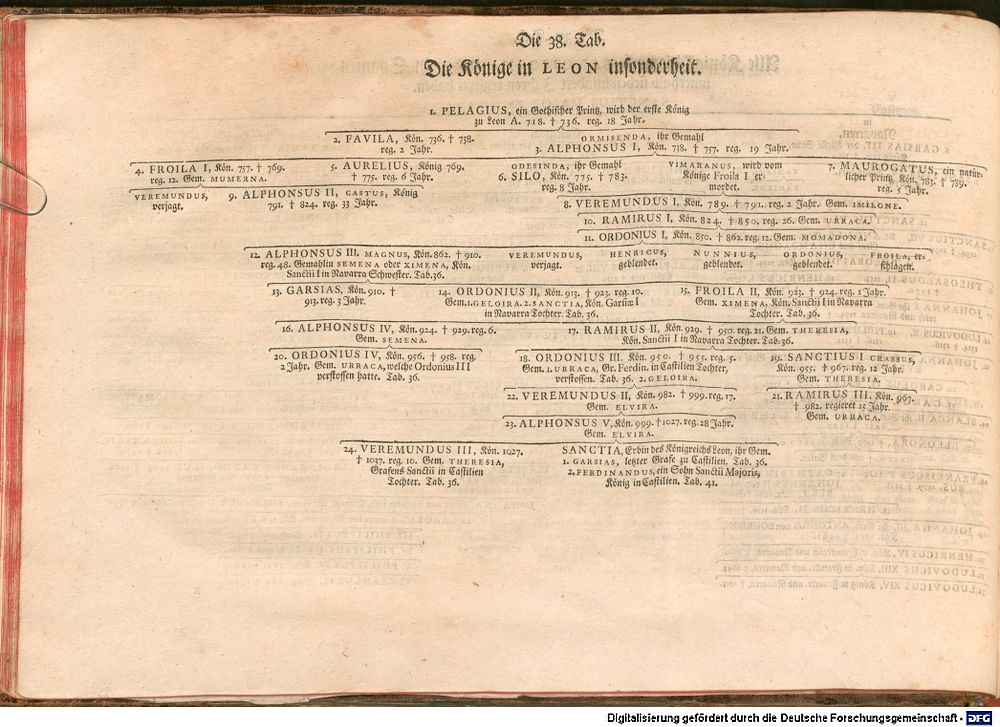 Die 38. Tab.
Die Könige in LEON insonderheit.
1. PELAGIUS, ein Gothischer Printz, wird der erste König
zu Leon A. 718. † 736. reg. 18 Jahr.
2. FAVILA, Kön. 736. † 738.
reg. 2 Jahr.
ORMISENDA, ihr Gemahl
3. ALPHONSUS I, Kön. 738. † 757. reg. 19 Jahr.
4. FROILA I, Kön. 757. † 769.
reg. 12. Gem. MUMERNA.
5. AURELIUS, König 769.
† 775. reg. 6 Jahr.
ODESINDA, ihr Gemahl
6. SILO, Kön. 775. † 783.
reg. 8 Jahr.
VIMARANUS, wird vom
Könige Froila I er-
mordet.
7. MAUROGATUS, ein natür-
licher Printz, Kön. 783. † 789.
reg. 5 Jahr.
VEREMUNDUS,
verjagt.
9. ALPHONSUS II, CASTUS, König
791. † 824. reg. 33 Jahr.
8. VEREMUNDUS I, Kön. 789. † 791. reg. 2 Jahr. Gem. IMILONE.
10. RAMIRUS I, Kön. 824. † 850. reg. 26. Gem. URRACA.
11. ORDONIUS I, Kön. 850. † 862. reg. 12. Gem. MOMADONA.
12. ALPHONSUS III. MAGNUS, Kön. 862. † 910.
reg. 48. Gemahlin SEMENA oder XIMENA, Kön.
Sanctii I in Navarra Schwester. Tab. 36.
VEREMUNDUS,
verjagt.
HENRICUS,
geblendet.
NUNNIUS,
geblendet.
ORDONIUS,
geblendet.
FROILA, er-
schlagen.
13. GARSIAS, Kön. 910. †
913. reg. 3 Jahr.
14. ORDONIUS II, Kön. 913. † 923. reg. 10.
Gem. 1. GELOIRA. 2. SANCTIA, Kön. Garsiæ I
in Navarra Tochter. Tab. 36.
15. FROILA II, Kön. 923. † 924. reg. 1 Jahr.
Gem. XIMENA, Kön. Sanctii I in Navarra
Tochter. Tab. 36.
16. ALPHONSUS IV, Kön. 924. † 929. reg. 6.
Gem. SEMENA.
17. RAMIRUS II, Kön. 929. † 950. reg. 21. Gem. THERESIA,
Kön. Sanctii I in Navarra Tochter. Tab. 36.
20. ORDONIUS IV, Kön. 956. † 958. reg.
2 Jahr. Gem. URRACA, welche Ordonius III
verstossen hatte. Tab. 36.
18. ORDONIUS III, Kön. 950. † 955. reg. 5.
Gem. 1. URRACA, Gr. Ferdin. in Castilien Tochter,
verstossen. Tab. 36. 2. GELOIRA.
19. SANCTIUS I CRASSUS,
Kön. 955. † 967. reg. 12 Jahr.
Gem. THERESIA.
22. VEREMUNDUS II, Kön. 982. † 999. reg. 17.
Gem. ELVIRA.
21. RAMIRUS III, Kön. 967.
† 982. regieret 15 Jahr.
Gem. URRACA.
23. ALPHONSUS V, Kön. 999. † 1027. reg. 28 Jahr.
Gem. ELVIRA.
24. VEREMUNDUS III, Kön. 1027.
† 1037. reg. 10. Gem. THERESIA,
Grafens Sanctii in Castilien
Tochter. Tab. 36.
SANCTIA, Erbin des Königreichs Leon, ihr Gem.
1. GARSIAS, letzter Grafe zu Castilien. Tab. 36.
2. FERDINANDUS, ein Sohn Sanctii Majoris,
König in Castilien. Tab. 41.
Digitalisierung gefördert durch die Deutsche Forschungsgemeinschaft - DFG